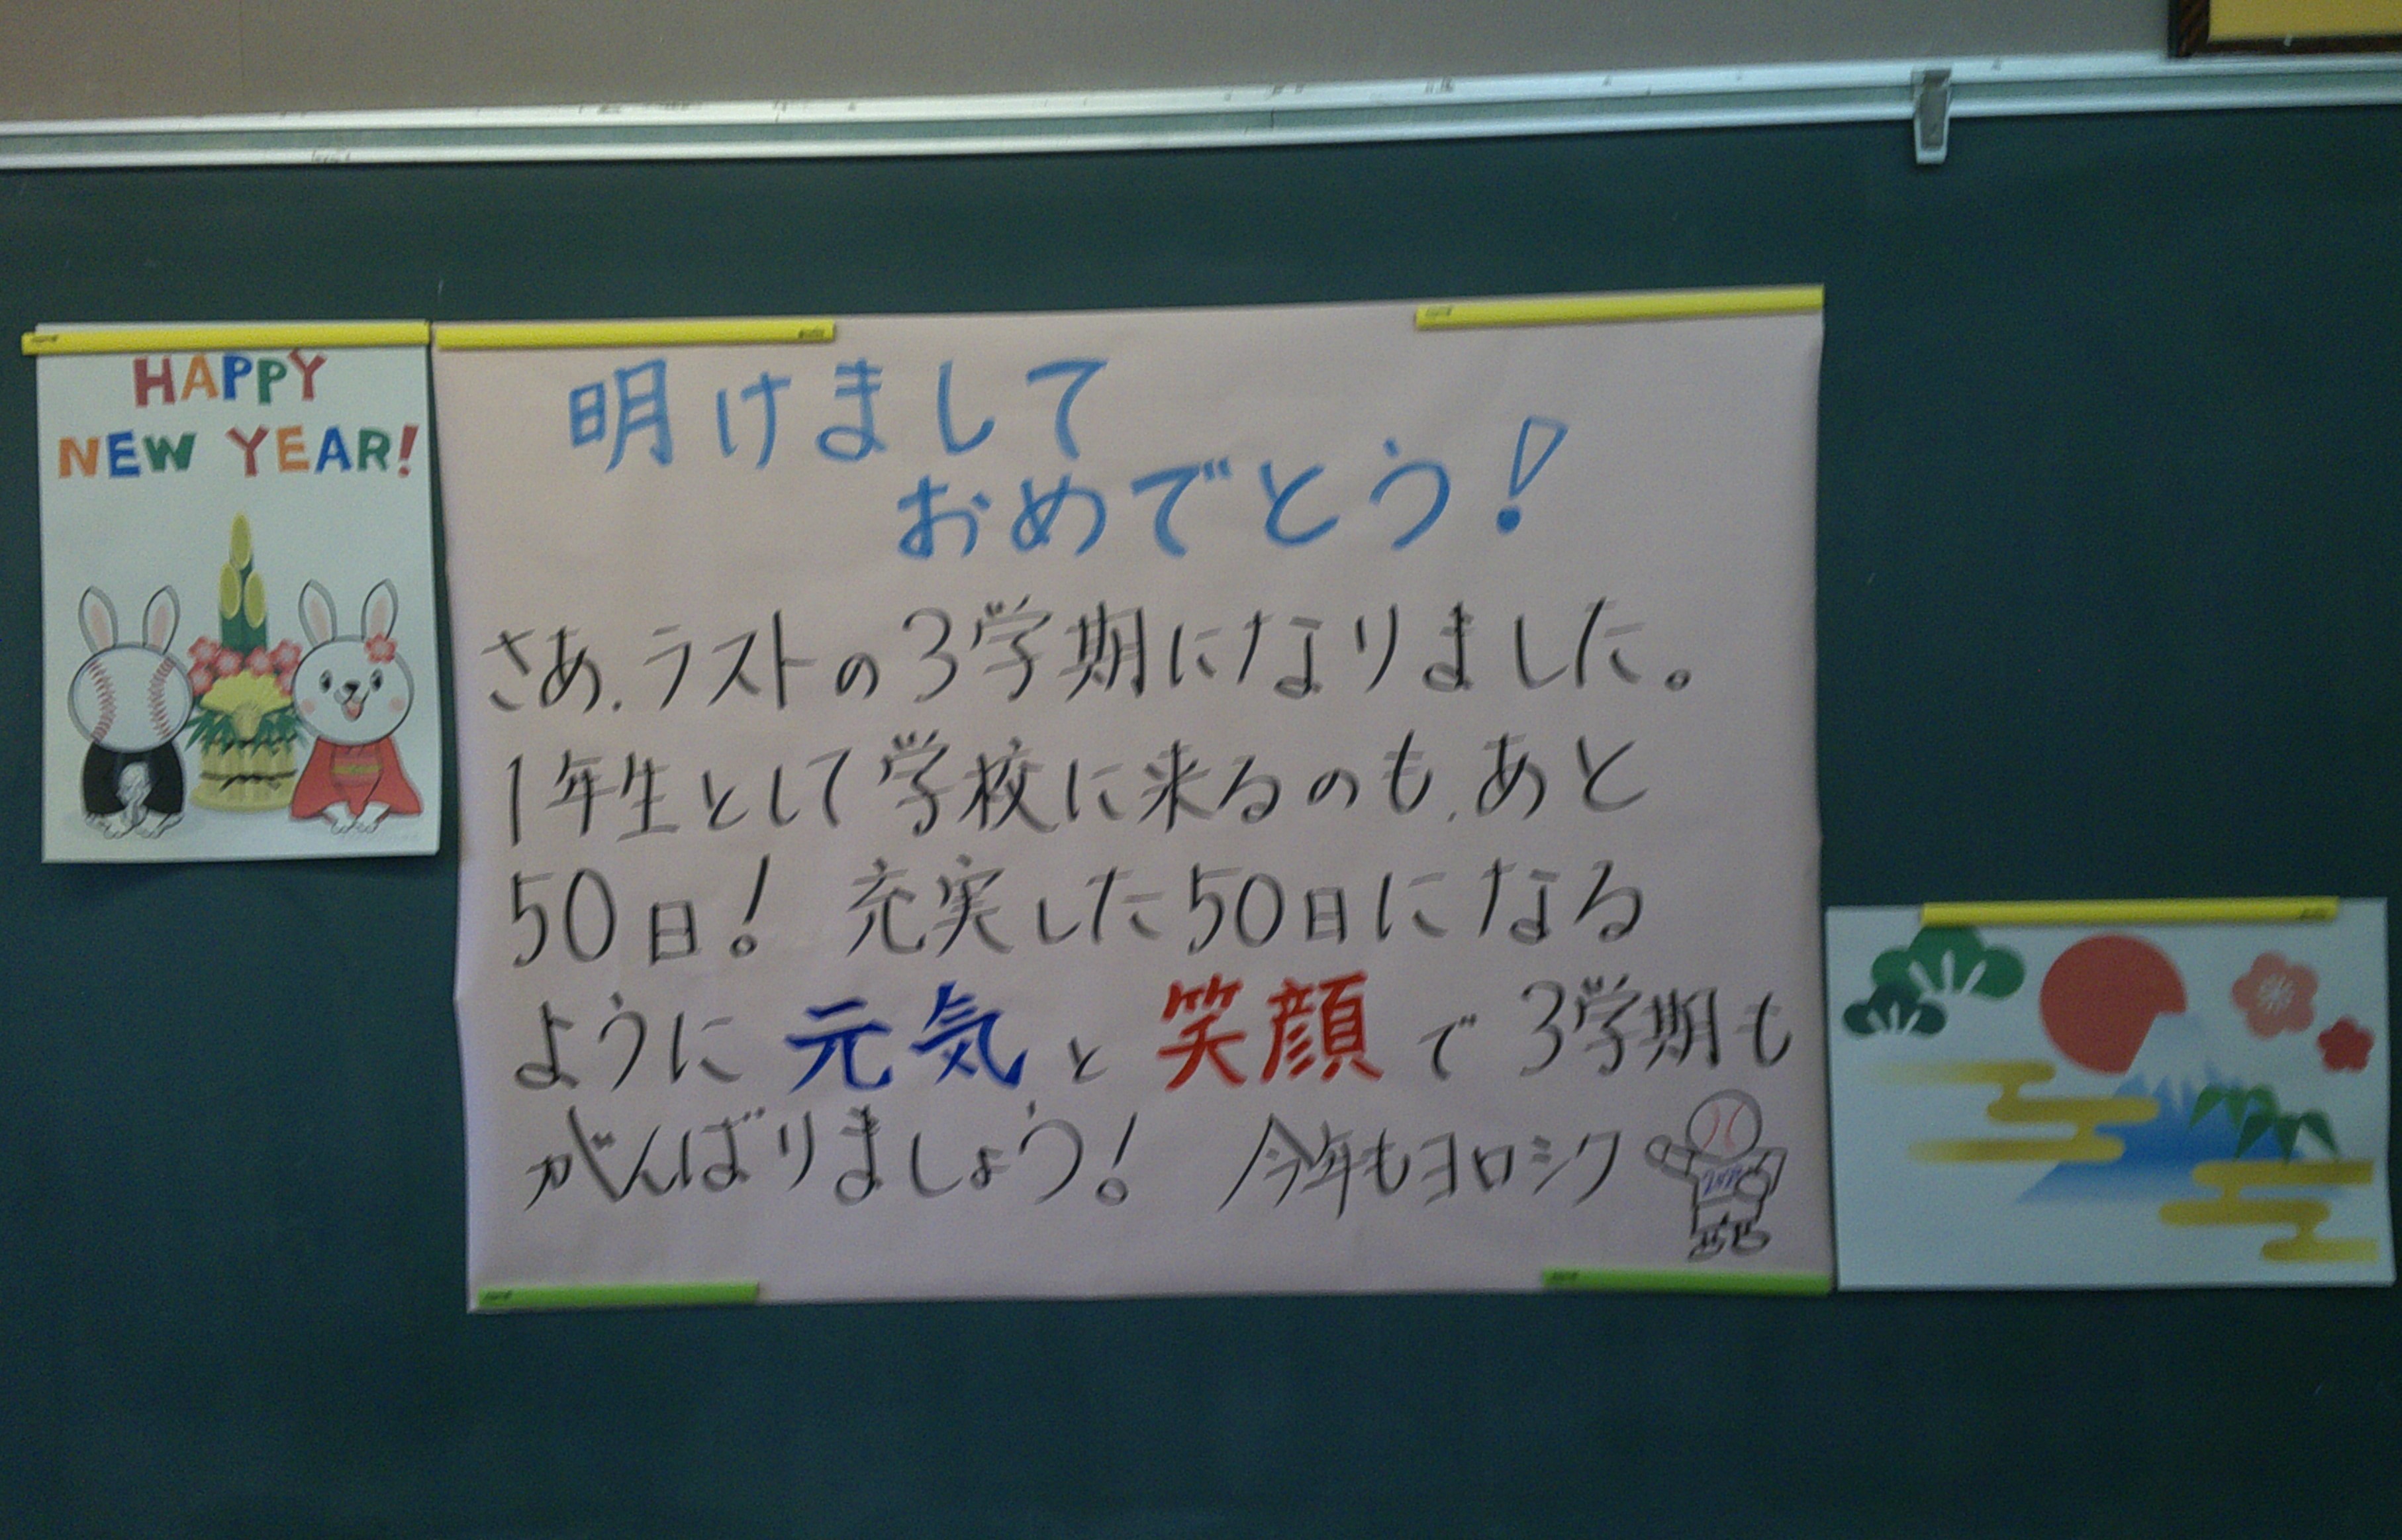 HAPPY
NEW YEAR!
明けまして
おめでとう!
さあ、ラストの3学期になりました。
1年生として学校に来るのも、あと
50日! 充実した50日になる
ように元気と笑顔で3学期も
がんばりましょう! 今年もヨロシク